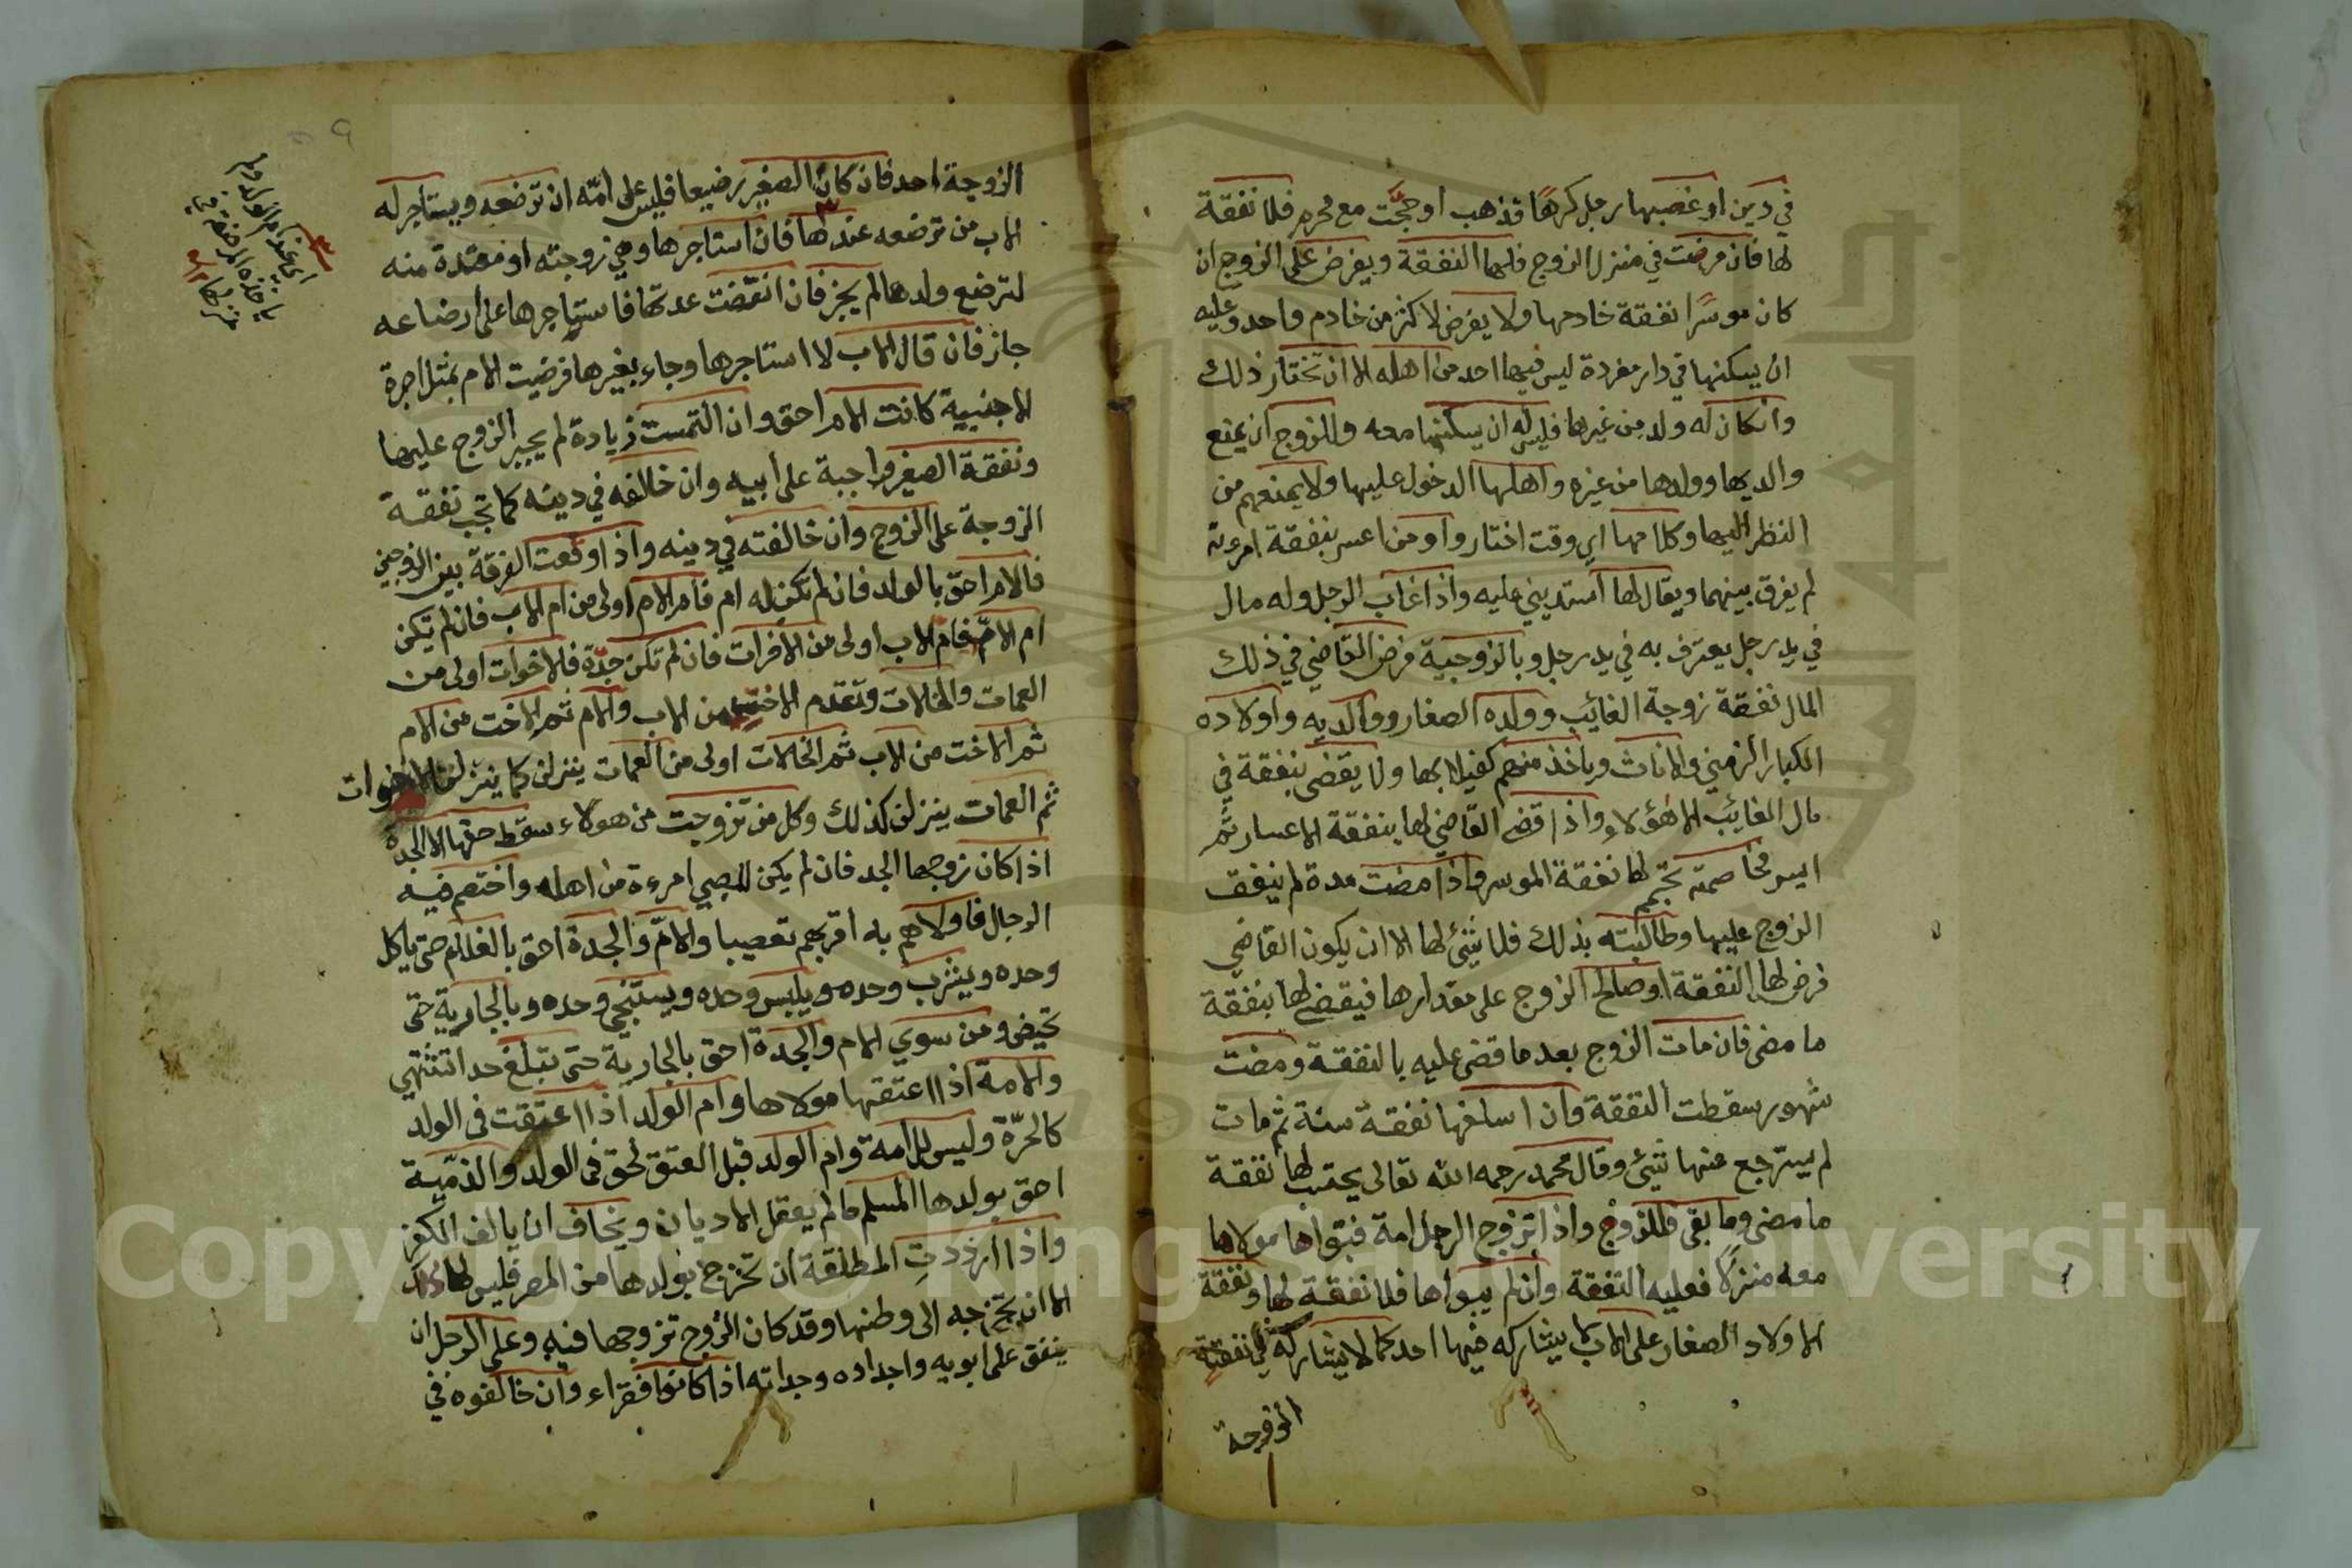 في دين او غصبها رجل كرها فذهب او حجّت مع محرم فلا نفقة
لها فان مرضت في منزل الزوج فلها النفقة ويفرض على الزوج ان
كان موسرا نفقة خادمها ولا يفرض لاكثر من خادم واحد وعليه
ان يسكنها في دار مفردة ليس فيها احد من اهله الا ان تختار ذلك
وانكان له ولد من غيرها فليس له ان يسكنها معه وللزوج ان يمنع
والديها وولدها من غيره واهلها الدخول عليها ولا يمنعهم من
النظر اليها وكلامها اي وقت اختاروا ومن اعسر بنفقة امرءته
لم يفرق بينهما ويقال لها استديني عليه واذا غاب الرجل وله مال
في يد رجل يعترف به في يد رجل وبالزوجية فرض القاضي في ذلك
المال نفقة زوجة الغائب وولده الصغار ووالديه واولاده
الكبار الزمني والاناث وياخذ منهم كفيلا بها ولا يقضى بنفقة في
مال الغائب الا هؤلاء واذا قضى القاضي لها بنفقة الاعسار ثم
ايسر مخاصمته تمم لها نفقة الموسر واذا مضت مدة لم ينفق
الزوج عليها وطالبته بذلك فلا شئ لها الا ان يكون القاضي
فرض لها النفقة او صالح الزوج على مقدارها فيقضى لها بنفقة
ما مضى فان مات الزوج بعد ما قضى عليه بالنفقة ومضت
شهور سقطت النفقة وان اسلفها نفقة سنة ثم مات
لم يسترجع منها شئ وقال محمد رحمه الله تعالى يحتسب لها نفقة
ما مضى وما بقى للزوج واذا تزوج الرجل امة فبوّاها مولاها
معه منزلا فعليه النفقة وان لم يبواها فلا نفقة لها ونفقة
الاولاد الصغار على الاب لا يشاركه فيها احد كما لا يشاركه في نفقة
الزوجة
الزوجة احد فان كان الصغير رضيعا فليس على امّه ان ترضعه ويستاجر له
الاب من ترضعه عندها فان استاجرها وهي زوجته او معتدة منه
لترضع ولدها لم يجز فان انقضت عدتها فاستاجرها على ارضاعه
جاز فان قال الاب لا استاجرها وجاء بغيرها فرضيت الام بمثل اجرة
الاجنبية كانت الام احق وان التمست زيادة لم يجبر الزوج عليها
ونفقة الصغير واجبة على ابيه وان خالفه في دينه كما تجب نفقة
الزوجة على الزوج وان خالفته في دينه واذا وقعت الفرقة بين الزوجين
فالام احق بالولد فان لم تكن له ام فام الام اولى من ام الاب فان لم تكن
ام الامّ فام الاب اولى من الاخرات فان لم تكن جدّة فلاخوات اولى من
العمات والخالات وتقدم الاخت من الاب والام ثم الاخت من الام
ثم الاخت من الاب ثم الخالات اولى من العمات ينزلن كما ينزلن الاخوات
ثم العمات ينزلن كذلك وكل من تزوجت من هولاء سقط حقها الا الجدة
اذا كان زوجها الجد فان لم يكن للصبي امرءة من اهله واختصم فيه
الرجال فاولاهم به اقربهم تعصيبا والامّ والجدة احق بالغلام حتى ياكل
وحده ويشرب وحده ويلبس وحده ويستنجي وحده وبالجارية حتى
تحيض ومن سوي الام والجدة احق بالجارية حتى تبلغ حدا تشتهي
والامة اذا اعتقها مولاها وام الولد اذا اعتقت في الولد
كالحرّة وليس للامة وام الولد قبل العتق حق في الولد والذمّية
احق بولدها المسلم ما لم يعقل الاديان ويخاف ان يالف الكفر
واذا اردت المطلقة ان تخرج بولدها من المصر فليس لها ذلك
الا ان تخرجه الى وطنها وقد كان الزوج تزوجها فيه وعلى الرجل ان
ينفق على ابويه واجداده وجداته اذا كانوا فقراء وان خالفوه في
Copyright © King Saud University